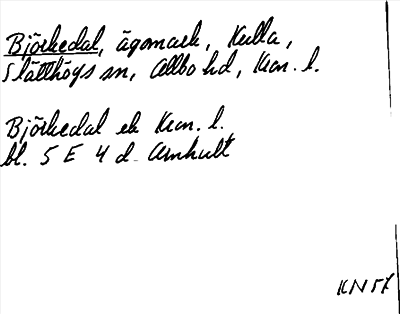 Björkedal, ägomark, Kulla,
Slätthögs sn, Allbo hd, Kron. l.
Björkedal ek Kron. l.
bl. 5 E 4 d Alvhult
KN57